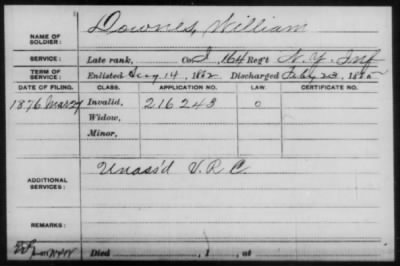 NAME OF SOLDIER: Downes, William
SERVICE: Late rank, Co. I, 164 Reg't N.Y. Inf
TERM OF SERVICE: Enlisted Aug 14, 1862 Discharged Feby 23, 186
DATE OF FILING. CLASS. APPLICATION NO. LAW. CERTIFICATE NO.
1876 Mar 27 Invalid, 216243 O
Widow,
Minor,
ADDITIONAL SERVICES: Unass'd V.R.C.
REMARKS:
Died , 1 , at